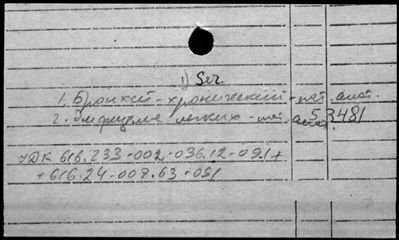 1) Ser.
1. Бронхит - хронический - пат. анат.
2. Эмфизема легких - пат. анат.
53481
УДК 616.233-002-036.12-091+
+616.24-008.63-091